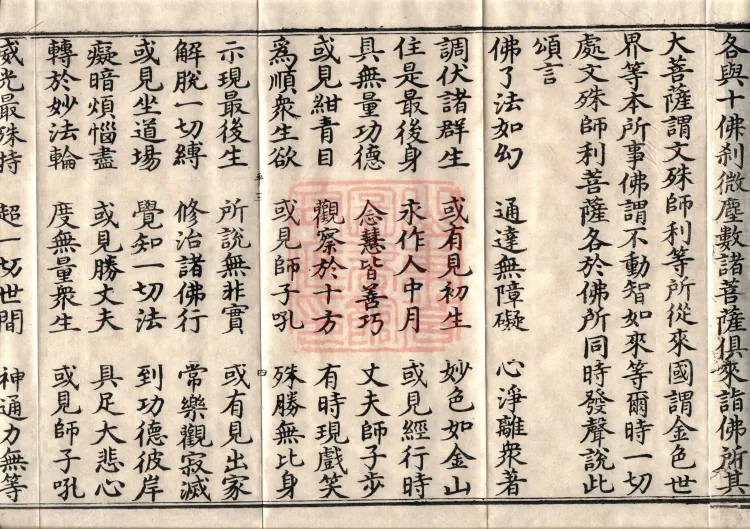 各與十佛刹微塵數諸菩薩俱來詣佛所其
大菩薩謂文殊師利等所從來國謂金色世
界等本所事佛謂不動智如來等爾時一切
處文殊師利菩薩各於佛所同時發聲說此
頌言
佛了法如幻 通達無障礙 心淨離衆著
調伏諸群生 或有見初生 妙色如金山
住是最後身 永作人中月 或見經行時
具無量功德 念慧皆善巧 丈夫師子步
或見紺青目 觀察於十方 有時現戲笑
爲順衆生欲 或見師子吼 殊勝無比身
示現最後生 所說無非實 或有見出家
解脫一切縛 修治諸佛行 常樂觀寂滅
或見坐道場 覺知一切法 到功德彼岸
癡暗煩惱盡 或見勝丈夫 具足大悲心
轉於妙法輪 度無量衆生 或見師子吼
威光最殊特 超一切世間 神通力無等
四